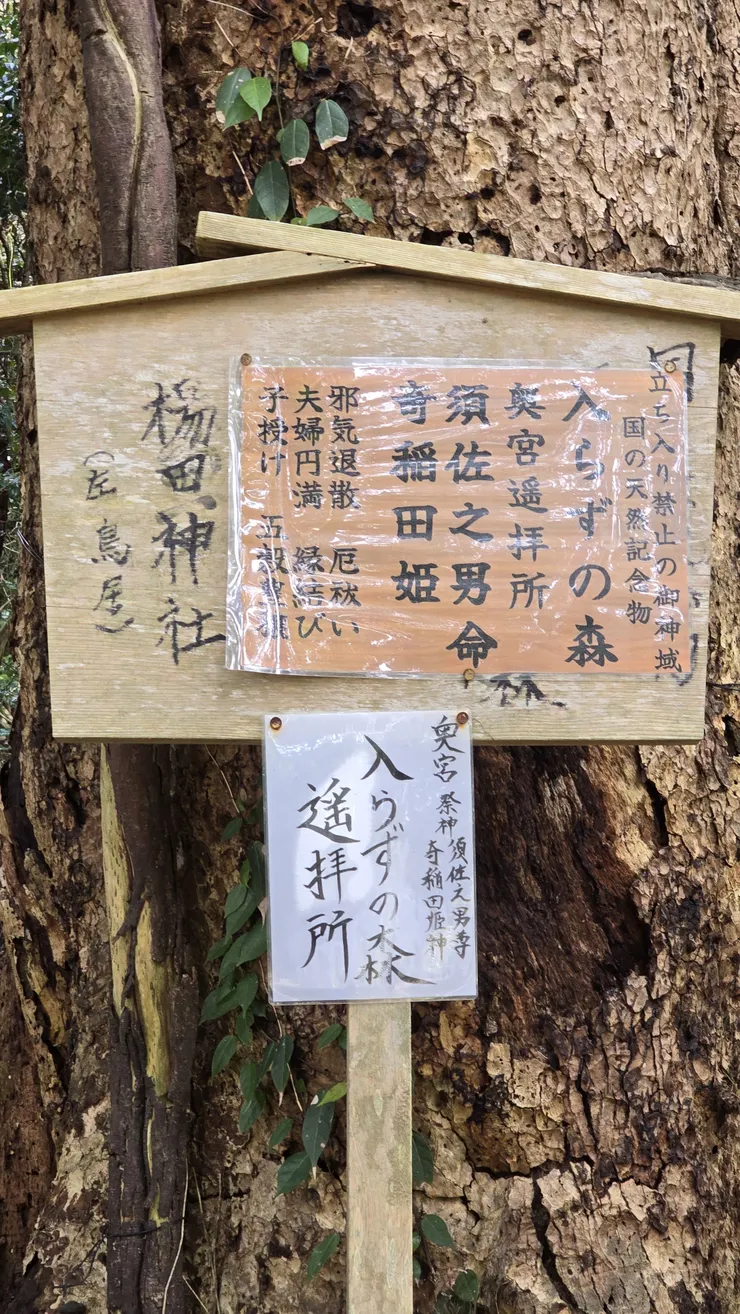 立ち入り禁止の御神域
国の天然記念物
入らずの森
奥宮遥拝所
須佐之男命
奇稲田姫
邪気退散 厄祓い
夫婦円満 縁結び
子授け 五穀豊穣
楊田神社
(左 鳥居)
奥宮 祭神 須佐之男
奇稲田姫神
入らずの森
遥拝所